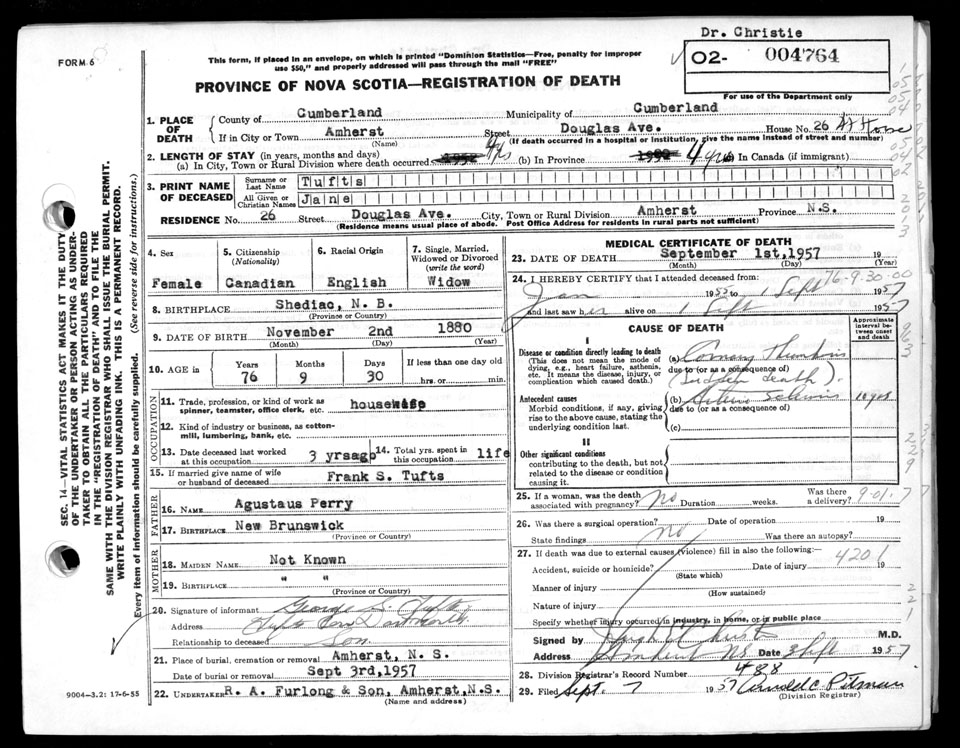 Dr. Christie
FORM 6
This form, if placed in an envelope, on which is printed "Dominion Statistics—Free, penalty for improper
use $50," and properly addressed will pass through the mail "FREE"
02- 004764
For use of the Department only
PROVINCE OF NOVA SCOTIA—REGISTRATION OF DEATH
1. PLACE OF DEATH
County of Cumberland Municipality of Cumberland
If in City or Town Amherst Street Douglas Ave. House No. 26 At Home
(Name) (If death occurred in a hospital or institution, give the name instead of street and number)
2. LENGTH OF STAY (in years, months and days)
(a) In City, Town or Rural Division where death occurred 4 yrs (b) In Province 4 yrs (c) In Canada (if immigrant)
3. PRINT NAME OF DECEASED
Surname or Last Name Tufts
All Given or Christian Names Jane
RESIDENCE No. 26 Street Douglas Ave. City, Town or Rural Division Amherst Province N.S.
(Residence means usual place of abode. Post Office Address for residents in rural parts not sufficient)
4. Sex
Female
5. Citizenship (Nationality)
Canadian
6. Racial Origin
English
7. Single, Married, Widowed or Divorced (write the word)
Widow
8. BIRTHPLACE Shediac, N. B.
(Province or Country)
9. DATE OF BIRTH November 2nd 1880
(Month) (Day) (Year)
10. AGE in
Years Months Days If less than one day old
76 9 30 hrs. or min.
OCCUPATION
11. Trade, profession, or kind of work as
spinner, teamster, office clerk, etc. housewife
12. Kind of industry or business, as cotton-
mill, lumbering, bank, etc.
13. Date deceased last worked
at this occupation 3 yrsago
14. Total yrs. spent in
this occupation life
15. If married give name of wife
or husband of deceased Frank S. Tufts
FATHER
16. NAME Agustaus Perry
17. BIRTHPLACE New Brunswick
(Province or Country)
MOTHER
18. MAIDEN NAME Not Known
19. BIRTHPLACE " "
(Province or Country)
20. Signature of informant George S. Tufts
Address
Relationship to deceased Son
21. Place of burial, cremation or removal Amherst, N. S.
Date of burial or removal Sept 3rd,1957
22. UNDERTAKER R. A. Furlong & Son, Amherst,N.S.
(Name and address)
MEDICAL CERTIFICATE OF DEATH
23. DATE OF DEATH September 1st,1957 19
(Month) (Day) (Year)
76-9-30-00
24. I HEREBY CERTIFY that I attended deceased from:
Jan 1955 to 1 Sept 1957
and last saw her alive on 1 Sept 1957
CAUSE OF DEATH
Approximate interval between onset and death
I
Disease or condition directly leading to death
(This does not mean the mode of
dying, e.g., heart failure, asthenia,
etc. It means the disease, injury, or
complication which caused death.)
(a) Coronary Thrombosis
due to (or as a consequence of)
(sudden death).
Antecedent causes
Morbid conditions, if any, giving
rise to the above cause, stating the
underlying condition last.
(b) 10 yrs
due to (or as a consequence of)
(c)
II
Other significant conditions
contributing to the death, but not
related to the disease or condition
causing it.
25. If a woman, was the death
associated with pregnancy? No Duration weeks. Was there
a delivery?
9-01-7
26. Was there a surgical operation? Date of operation 19
State findings No Was there an autopsy?
27. If death was due to external causes (violence) fill in also the following:
4201
Accident, suicide or homicide? Date of injury 19
(State which)
Manner of injury
(How sustained)
Nature of injury
Specify whether injury occurred in industry, in home, or in public place
Signed by M.D.
Address Amherst NS Date 3 Sept 1957
28. Division Registrar's Record Number 488
29. Filed Sept. 7 1957 Arnold C. Pitman
(Division Registrar)
SEC. 14—VITAL STATISTICS ACT MAKES IT THE DUTY
OF THE UNDERTAKER OR PERSON ACTING AS UNDER-
TAKER TO OBTAIN ALL THE PARTICULARS REQUIRED
IN THE "REGISTRATION OF DEATH" AND TO FILE IT
WITH THE DIVISION REGISTRAR WHO SHALL ISSUE THE BURIAL PERMIT.
SAME WRITE PLAINLY WITH UNFADING INK. THIS IS A PERMANENT RECORD.
Every item of information should be carefully supplied. (See reverse side for instructions.)
9004—3.2: 17-6-55